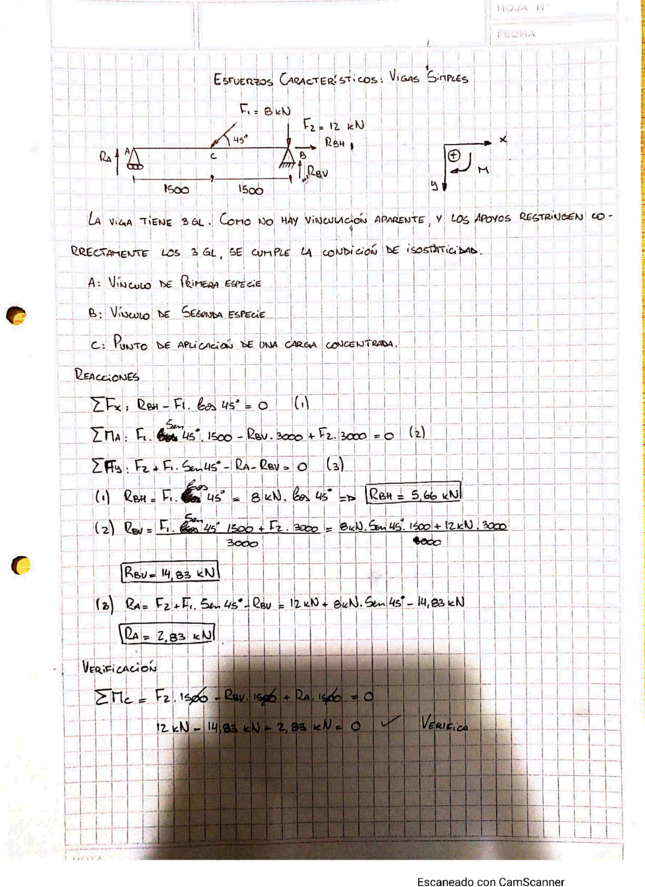 HOJA N°
FECHA
ESFUERZOS CARACTERÍSTICOS: VIGAS SIMPLES
F1 = 8 kN
F2 = 12 kN
45°
RBH
RA
A
C
B
RBV
1500
1500
x
+
M
y
LA VIGA TIENE 3 GL. COMO NO HAY VINCULACIÓN APARENTE, Y LOS APOYOS RESTRINGEN CO-
RRECTAMENTE LOS 3 GL, SE CUMPLE LA CONDICIÓN DE ISOSTATICIDAD.
A: VÍNCULO DE PRIMERA ESPECIE
B: VÍNCULO DE SEGUNDA ESPECIE
C: PUNTO DE APLICACIÓN DE UNA CARGA CONCENTRADA.
REACCIONES
ΣFx: RBH - F1. Cos 45° = 0 (1)
ΣMA: F1. Sen 45°. 1500 - RBV. 3000 + F2. 3000 = 0 (2)
ΣFy: F2 + F1. Sen 45° - RA - RBV = 0 (3)
(1) RBH = F1. Cos 45° = 8 kN. Cos 45° => RBH = 5,66 kN
(2) RBV = F1. Sen 45° 1500 + F2. 3000 = 8kN. Sen 45°. 1500 + 12kN. 3000
3000 3000
RBV = 14,83 kN
(3) RA = F2 + F1. Sen 45° - RBV = 12 kN + 8kN. Sen 45° - 14,83 kN
RA = 2,83 kN
VERIFICACIÓN
ΣMC = F2. 1500 - RBV. 1500 + RA. 1500 = 0
12 kN - 14,83 kN + 2,83 kN = 0 ✓ VERIFICA
NOTA
Escaneado con CamScanner